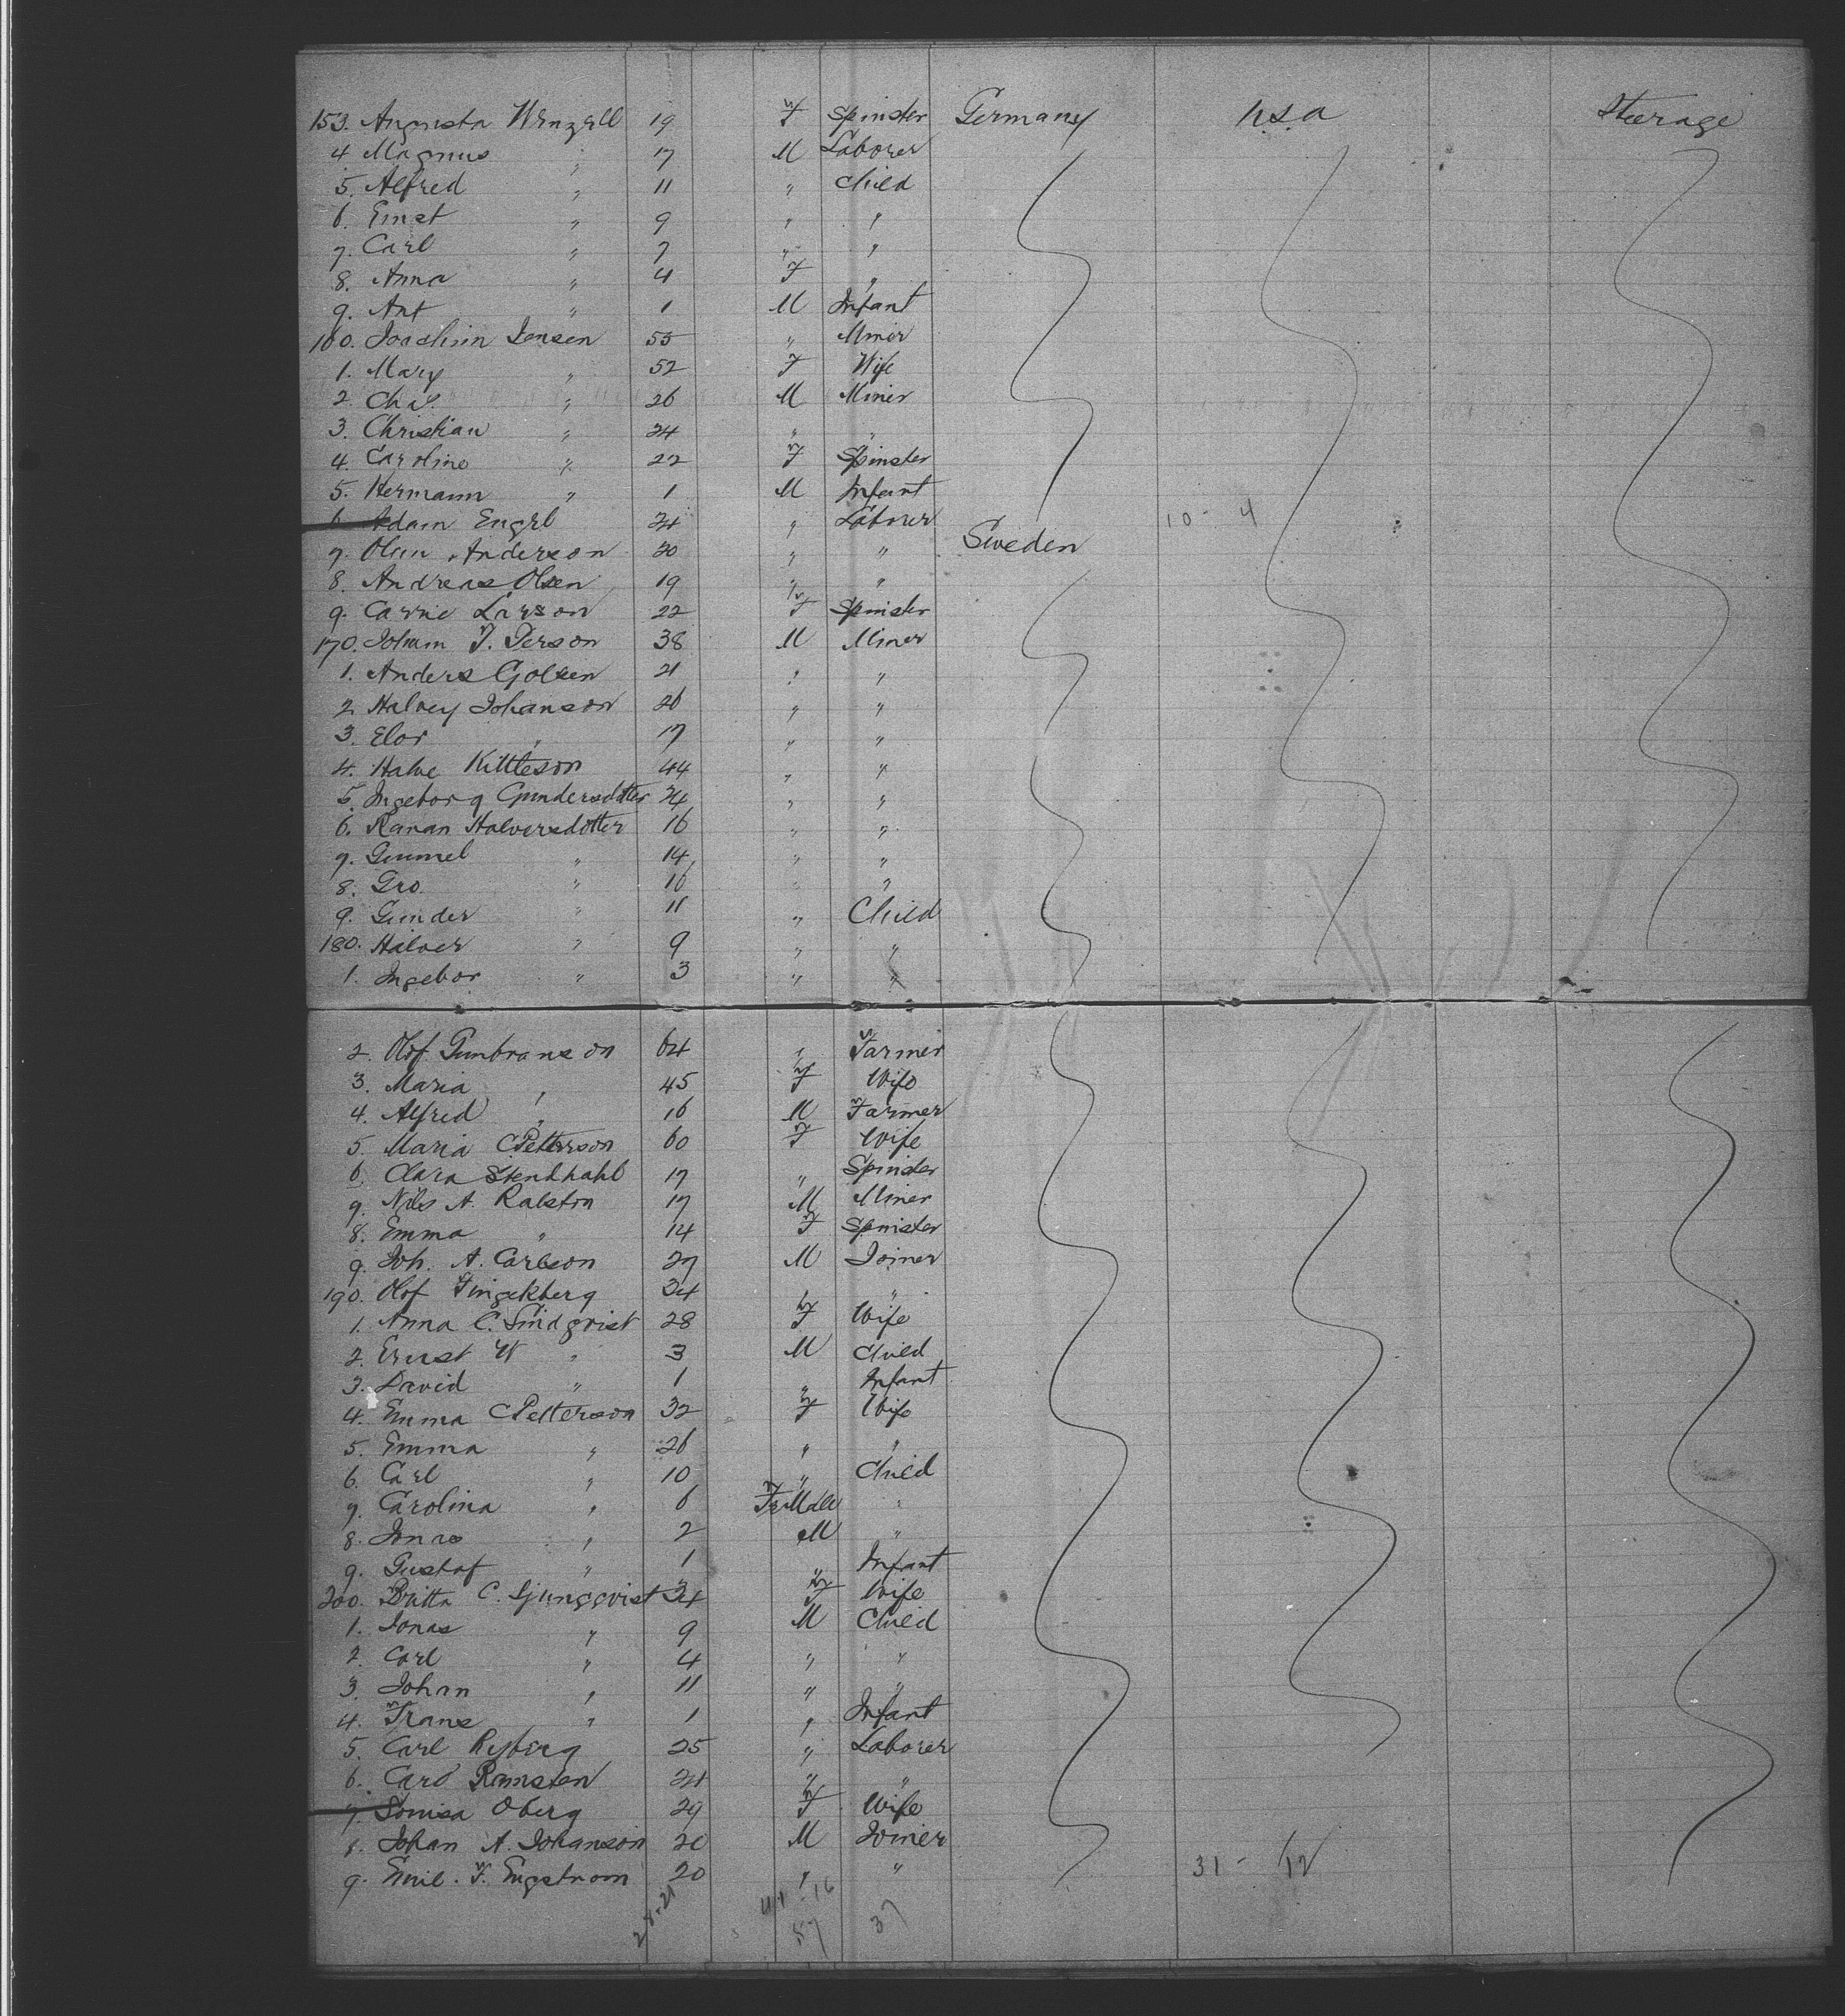 153. Augusta Wenzell 19 F Spinster Germany U.S.A Steerage
4 Magnus " 17 M Laborer
5. Alfred " 11 " Child
6. Ernst " 9 " "
7. Carl " 7 " "
8. Anna " 4 F "
9. Ant " 1 M Infant
160. Joachim Jensen 55 " Miner
1. Mary " 52 F Wife
2. Chas. " 26 M Miner
3. Christian " 24 " "
4. Caroline " 22 F Spinster
5. Hermann " 1 M Infant
6. Adam Engel 21 " Laborer 10 - 4
7. Olum Anderson 20 " " Sweden
8. Andreas Olsen 19 " "
9. Carrie Larson 22 F Spinster
170. Joham F. Person 38 M Miner
1. Anders Golsen 21 " "
2. Halvey Johanson 26 " "
3. Elor " 17 " "
4. Halve Kittleson 44 " "
5. Ingeborg Gundersdotter 24 " "
6. Ranan Halversdotter 16 " "
7. Gunmel " 14 " "
8. Gro " 16 " "
9. Gunder " 11 " Child
180. Halver " 9 " "
1. Ingebor " 3 " "
2. Olof Gunbranson 64 " Farmer
3. Maria " 45 F Wife
4. Alfred " 16 M Farmer
5. Maria C Petterson 60 F Wife
6. Clara Stenhhahl 17 " Spinster
7. Nils A. Ralston 17 M Miner
8. Emma " 14 F Spinster
9. Joh. A. Carlson 27 M Joiner
190. Olof 34 " "
1. Anna C. Lindqvist 28 F Wife
2. Ernst W " 3 M Child
3. David " 1 " Infant
4. Emma C Petterson 32 F Wife
5. Emma " 26 " "
6. Carl " 10 " Child
7. Carolina " 6 FeMale "
8. Jonas " 2 M "
9. Gustaf " 1 " Infant
200. Britta C. Ljungqvist 34 F Wife
1. Jonas " 9 M Child
2. Carl " 4 " "
3. Johan " 11 " "
4. Frans " 1 " Infant
5. Carl Ryberg 25 " Laborer
6. Carl Ramsten 21 " "
7. Louisa Oberg 29 F Wife
8. Johan A. Johanson 20 M Joiner
9. Emil. F. Engstrom 20 " " 31 - 12
28-21 41-16
57 37